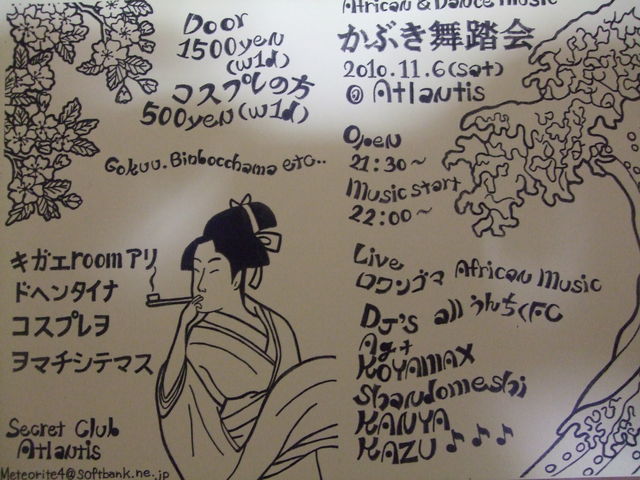 Door
1500yen
(w1d)
コスプレの方
500yen (w1d)
Gokuu. Binbocchama etc..
キガエroomアリ
ドヘンタイナ
コスプレヲ
ヲマチシテマス
Secret Club
Atlantis
Meteorite4@softbank.ne.jp
African & Dance music
かぶき舞踏会
2010.11.6(sat)
@ Atlantis
Open
21:30~
Music start
22:00~
Live
ロワンゴマ African Music
DJ's all うんちくFC
Ag+
KOYAMAX
Shandomeshi
KANYA
KAZU ♪ ♪ ♪